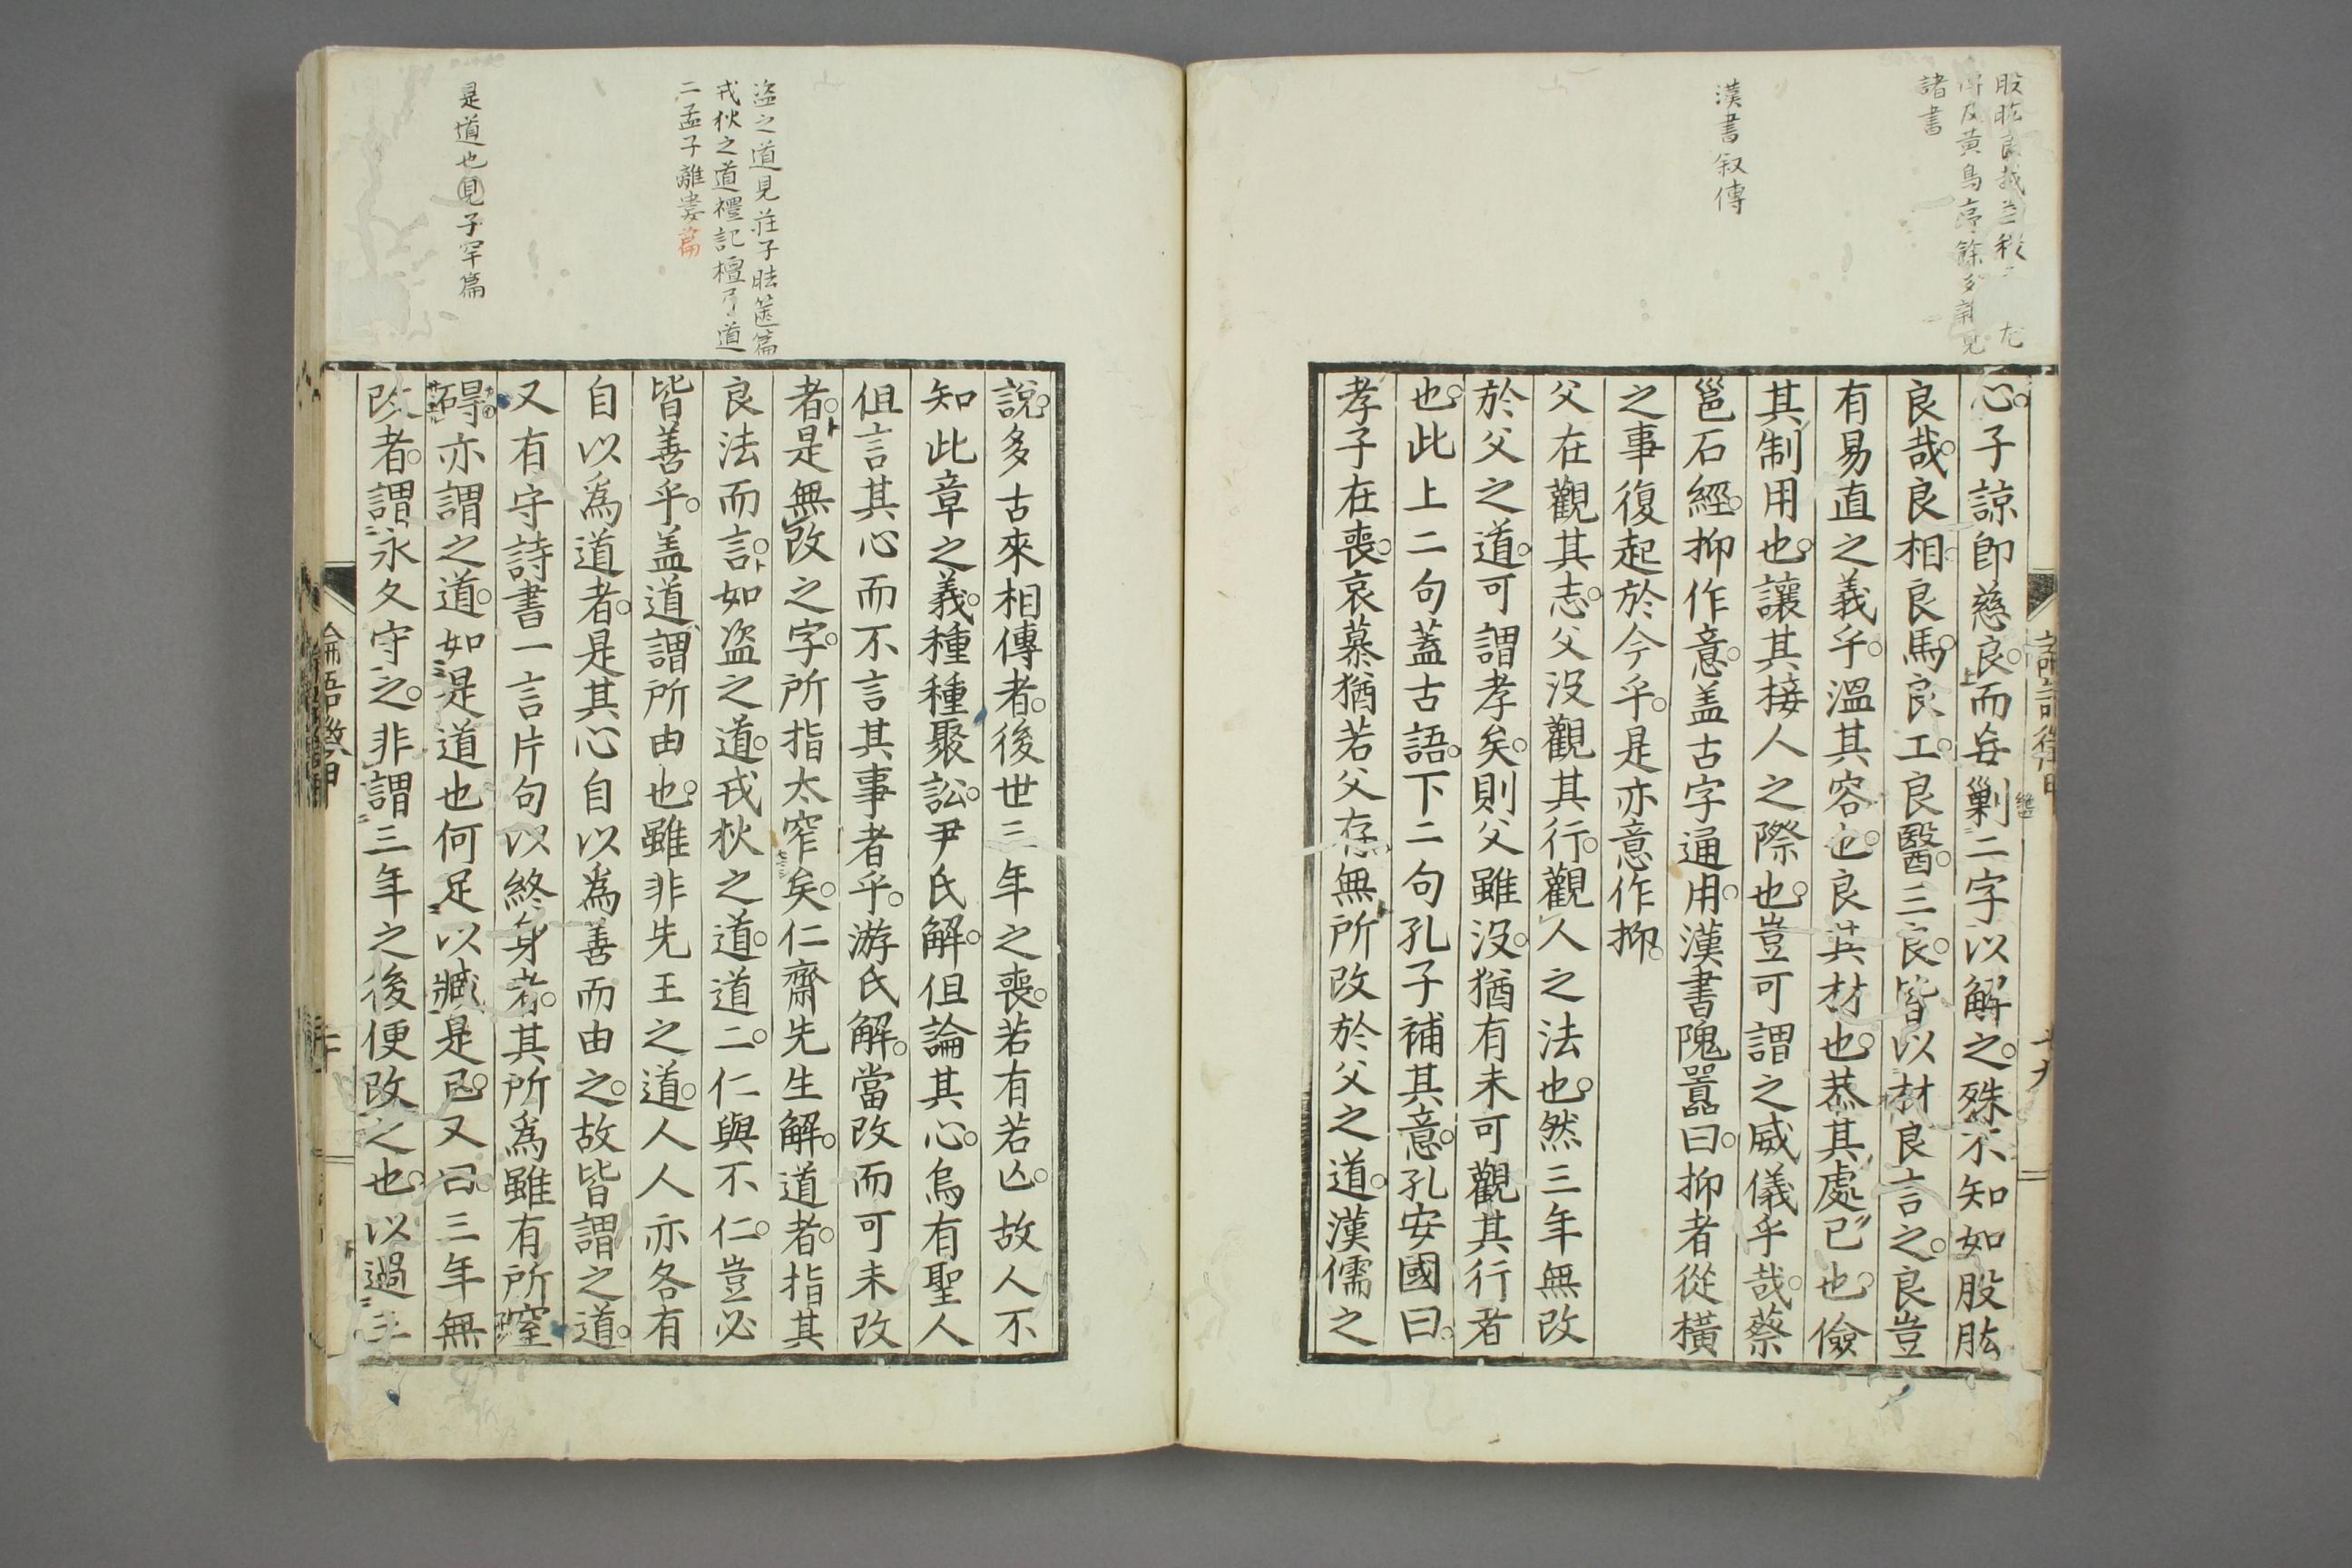 諸書
漢書叙傳
心子諒卽慈良而妄剿二字以解之殊不知如股肱
良哉良相良馬良工良醫三良皆以材良言之良豈
有易直之義乎溫其容也良其材也恭其處已也儉
其制用也讓其接人之際也豈可謂之威儀乎哉蔡
邕石經抑作意盖古字通用漢書隗囂曰抑者從橫
之事復起於今乎是亦意作抑
父在觀其志父沒觀其行觀人之法也然三年無改
於父之道可謂孝矣則父雖沒猶有未可觀其行者
也此上二句蓋古語下二句孔子補其意孔安國曰
孝子在喪哀慕猶若父存無所改於父之道漢儒之
盗之道見莊子胠篋篇
戎狄之道禮記檀弓道
二孟子離婁篇
是道也見子罕篇
說多古來相傳者後世三年之喪若有若亾故人不
知此章之義種種聚訟尹氏解伹論其心烏有聖人
伹言其心而不言其事者乎游氏解當改而可未改
者是無改之字所指太窄矣仁齋先生解道者指其
良法而言如盗之道戎狄之道道二仁與不仁豈必
皆善乎盖道謂所由也雖非先王之道人人亦各有
自以爲道者是其心自以爲善而由之故皆謂之道
又有守詩書一言片句以終身者其所爲雖有所窒
碍亦謂之道如是道也何足以臧是已又曰三年無
改者謂永久守之非謂三年之後便改之也以過三
論語徵甲